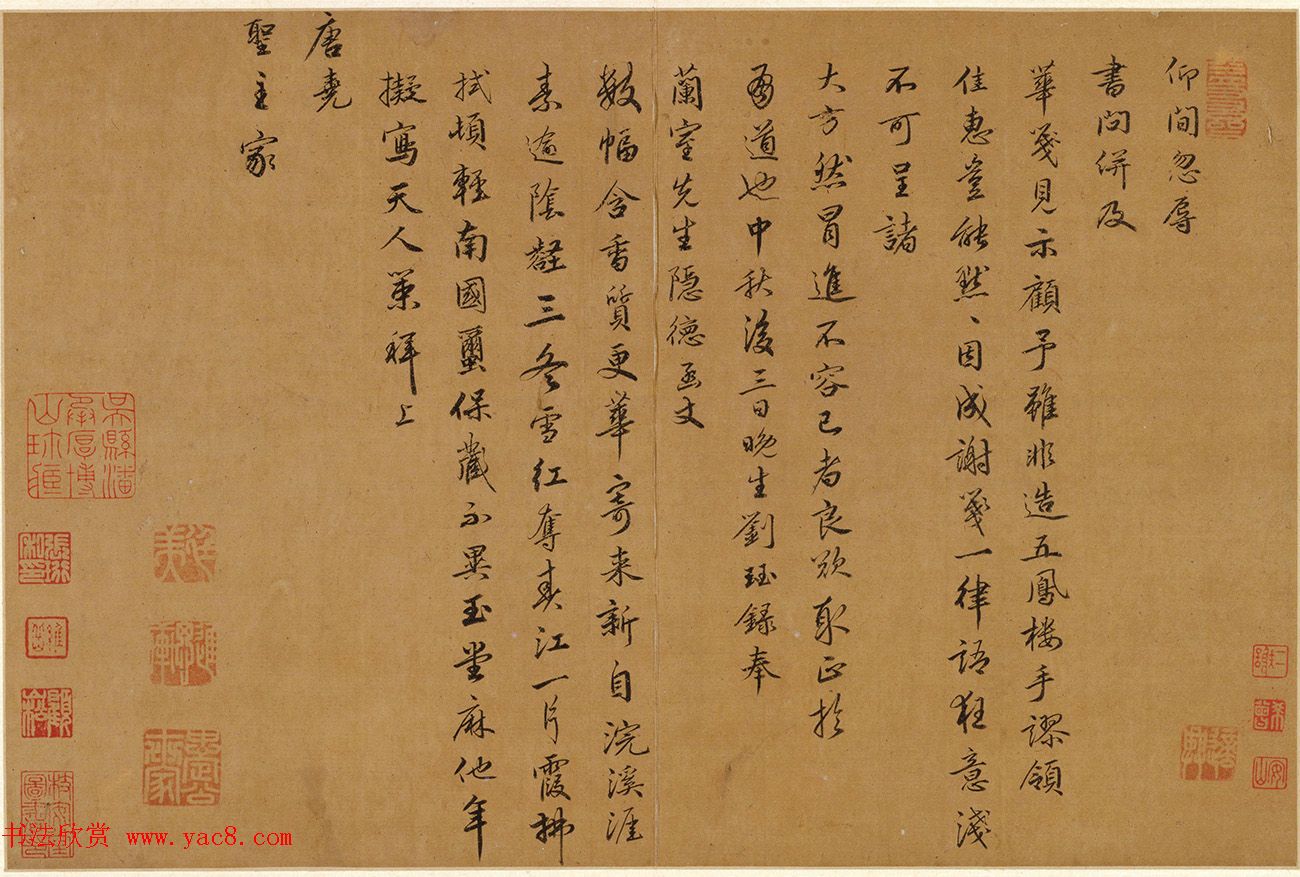 仰間忽辱
書問併及
華箋見示顧予雖非造五鳳樓手謬領
佳惠豈能然〻因成謝箋一律語狂意淺
不可呈諸
大方然冒進不容已者良欲取正於
有道也中秋後三日晚生劉珏錄奉
蘭室先生隱德函丈
數幅含香質更華寄来新自浣溪涯
素逾陰壑三冬雪紅奪春江一片霞拂
拭頓輕南國璽保藏不異玉堂麻他年
擬寫天人策拜上
唐堯
聖主家
吳縣潘
承厚博
山珍藏
书法欣赏 www.yac8.com